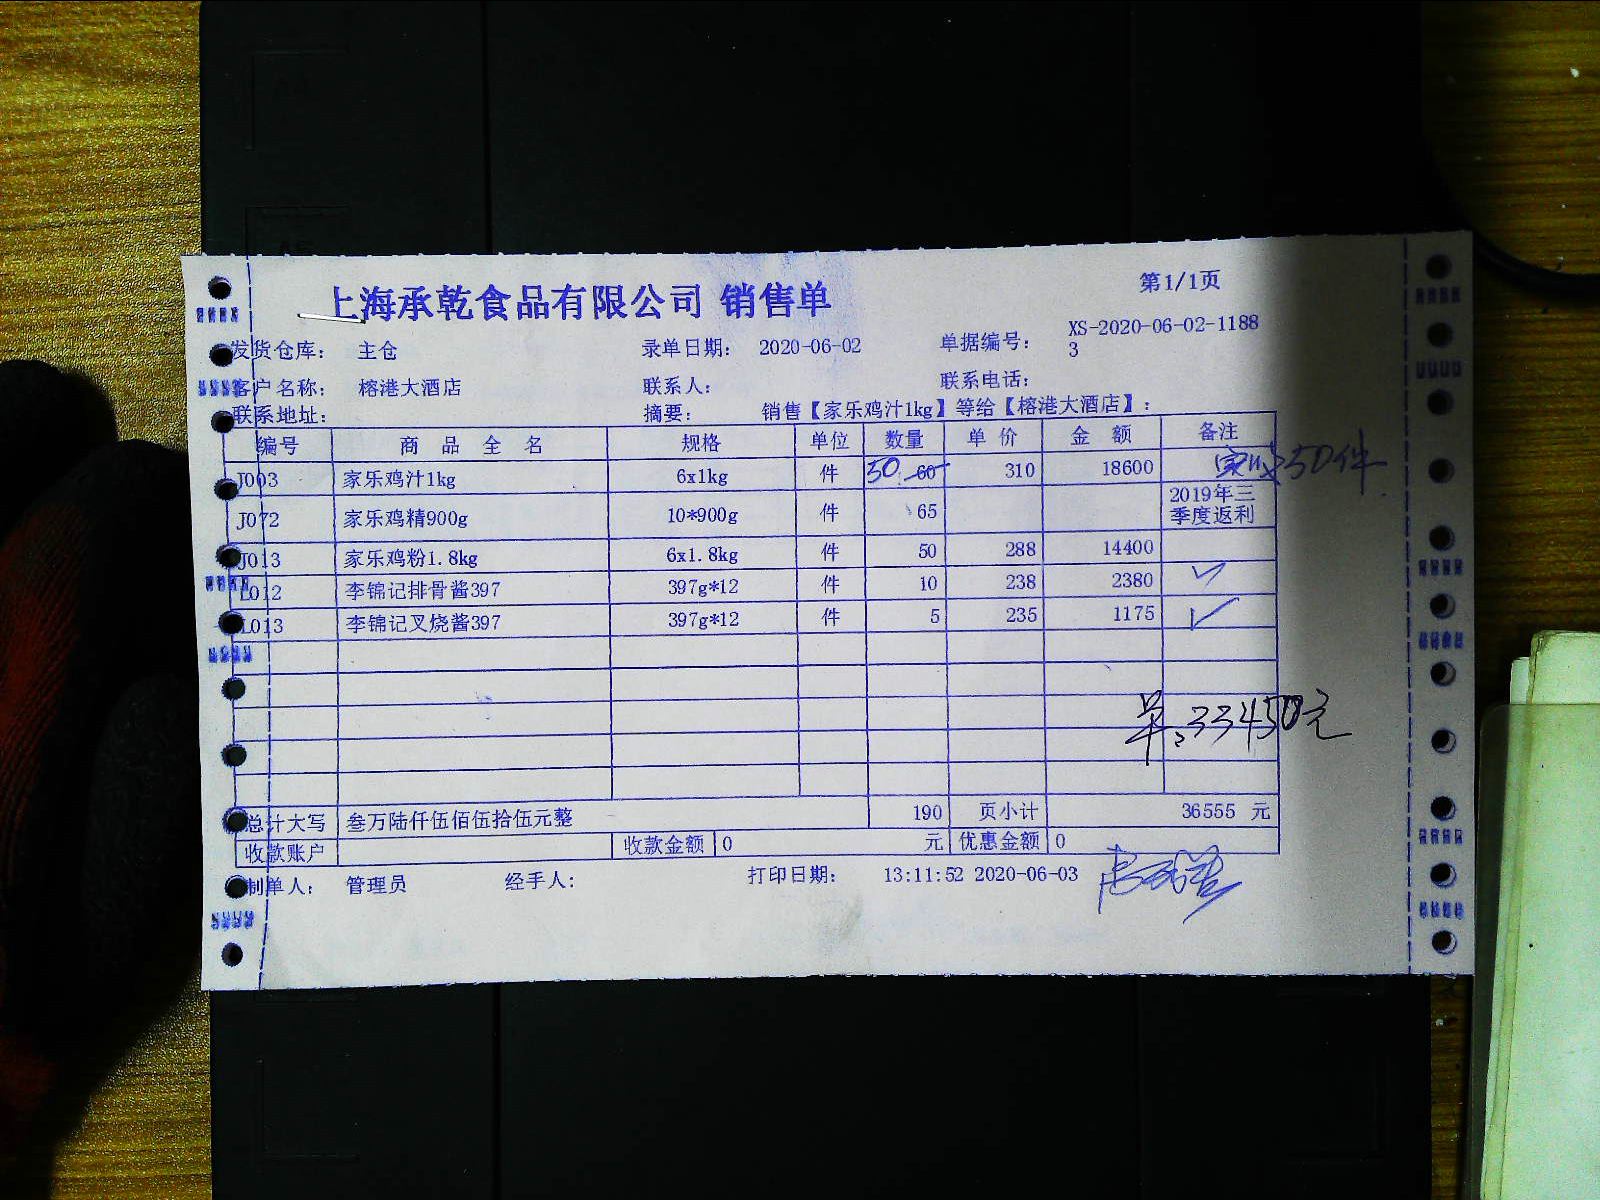 上海承乾食品有限公司 销售单
第1/1页
发货仓库： 主仓 录单日期： 2020-06-02 单据编号： XS-2020-06-02-1188
3
客户名称： 榕港大酒店 联系人： 联系电话：
联系地址： 摘要： 销售【家乐鸡汁1kg】等给【榕港大酒店】：
编号 商品全名 规格 单位 数量 单价 金额 备注
J003 家乐鸡汁1kg 6x1kg 件 50 60 310 18600 实收50件
J072 家乐鸡精900g 10*900g 件 65 2019年三
季度返利
J013 家乐鸡粉1.8kg 6x1.8kg 件 50 288 14400
L012 李锦记排骨酱397 397g*12 件 10 238 2380 ✓
L013 李锦记叉烧酱397 397g*12 件 5 235 1175 ✓
33450元
总计大写 叁万陆仟伍佰伍拾伍元整 190 页小计 36555 元
收款账户 收款金额 0 元 优惠金额 0
制单人： 管理员 经手人： 打印日期： 13:11:52 2020-06-03